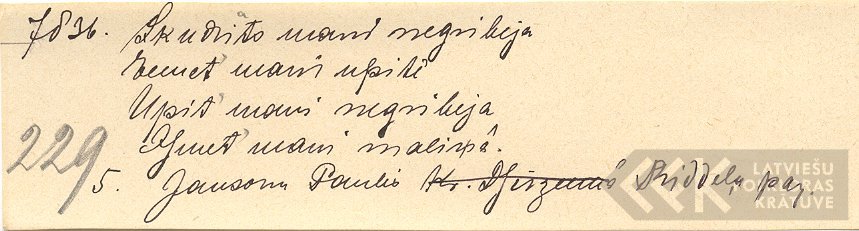 7836. Skudrāts mani negribēja
Iemet' mani upītē
Upīt' mani negribēja
Izmet' mani maliņâ.
229
5. Jansonu Paulis Kr. Dzirzemis Briddeļa pag.
LATVIEŠU
FOLKLORAS
KRĀTUVE